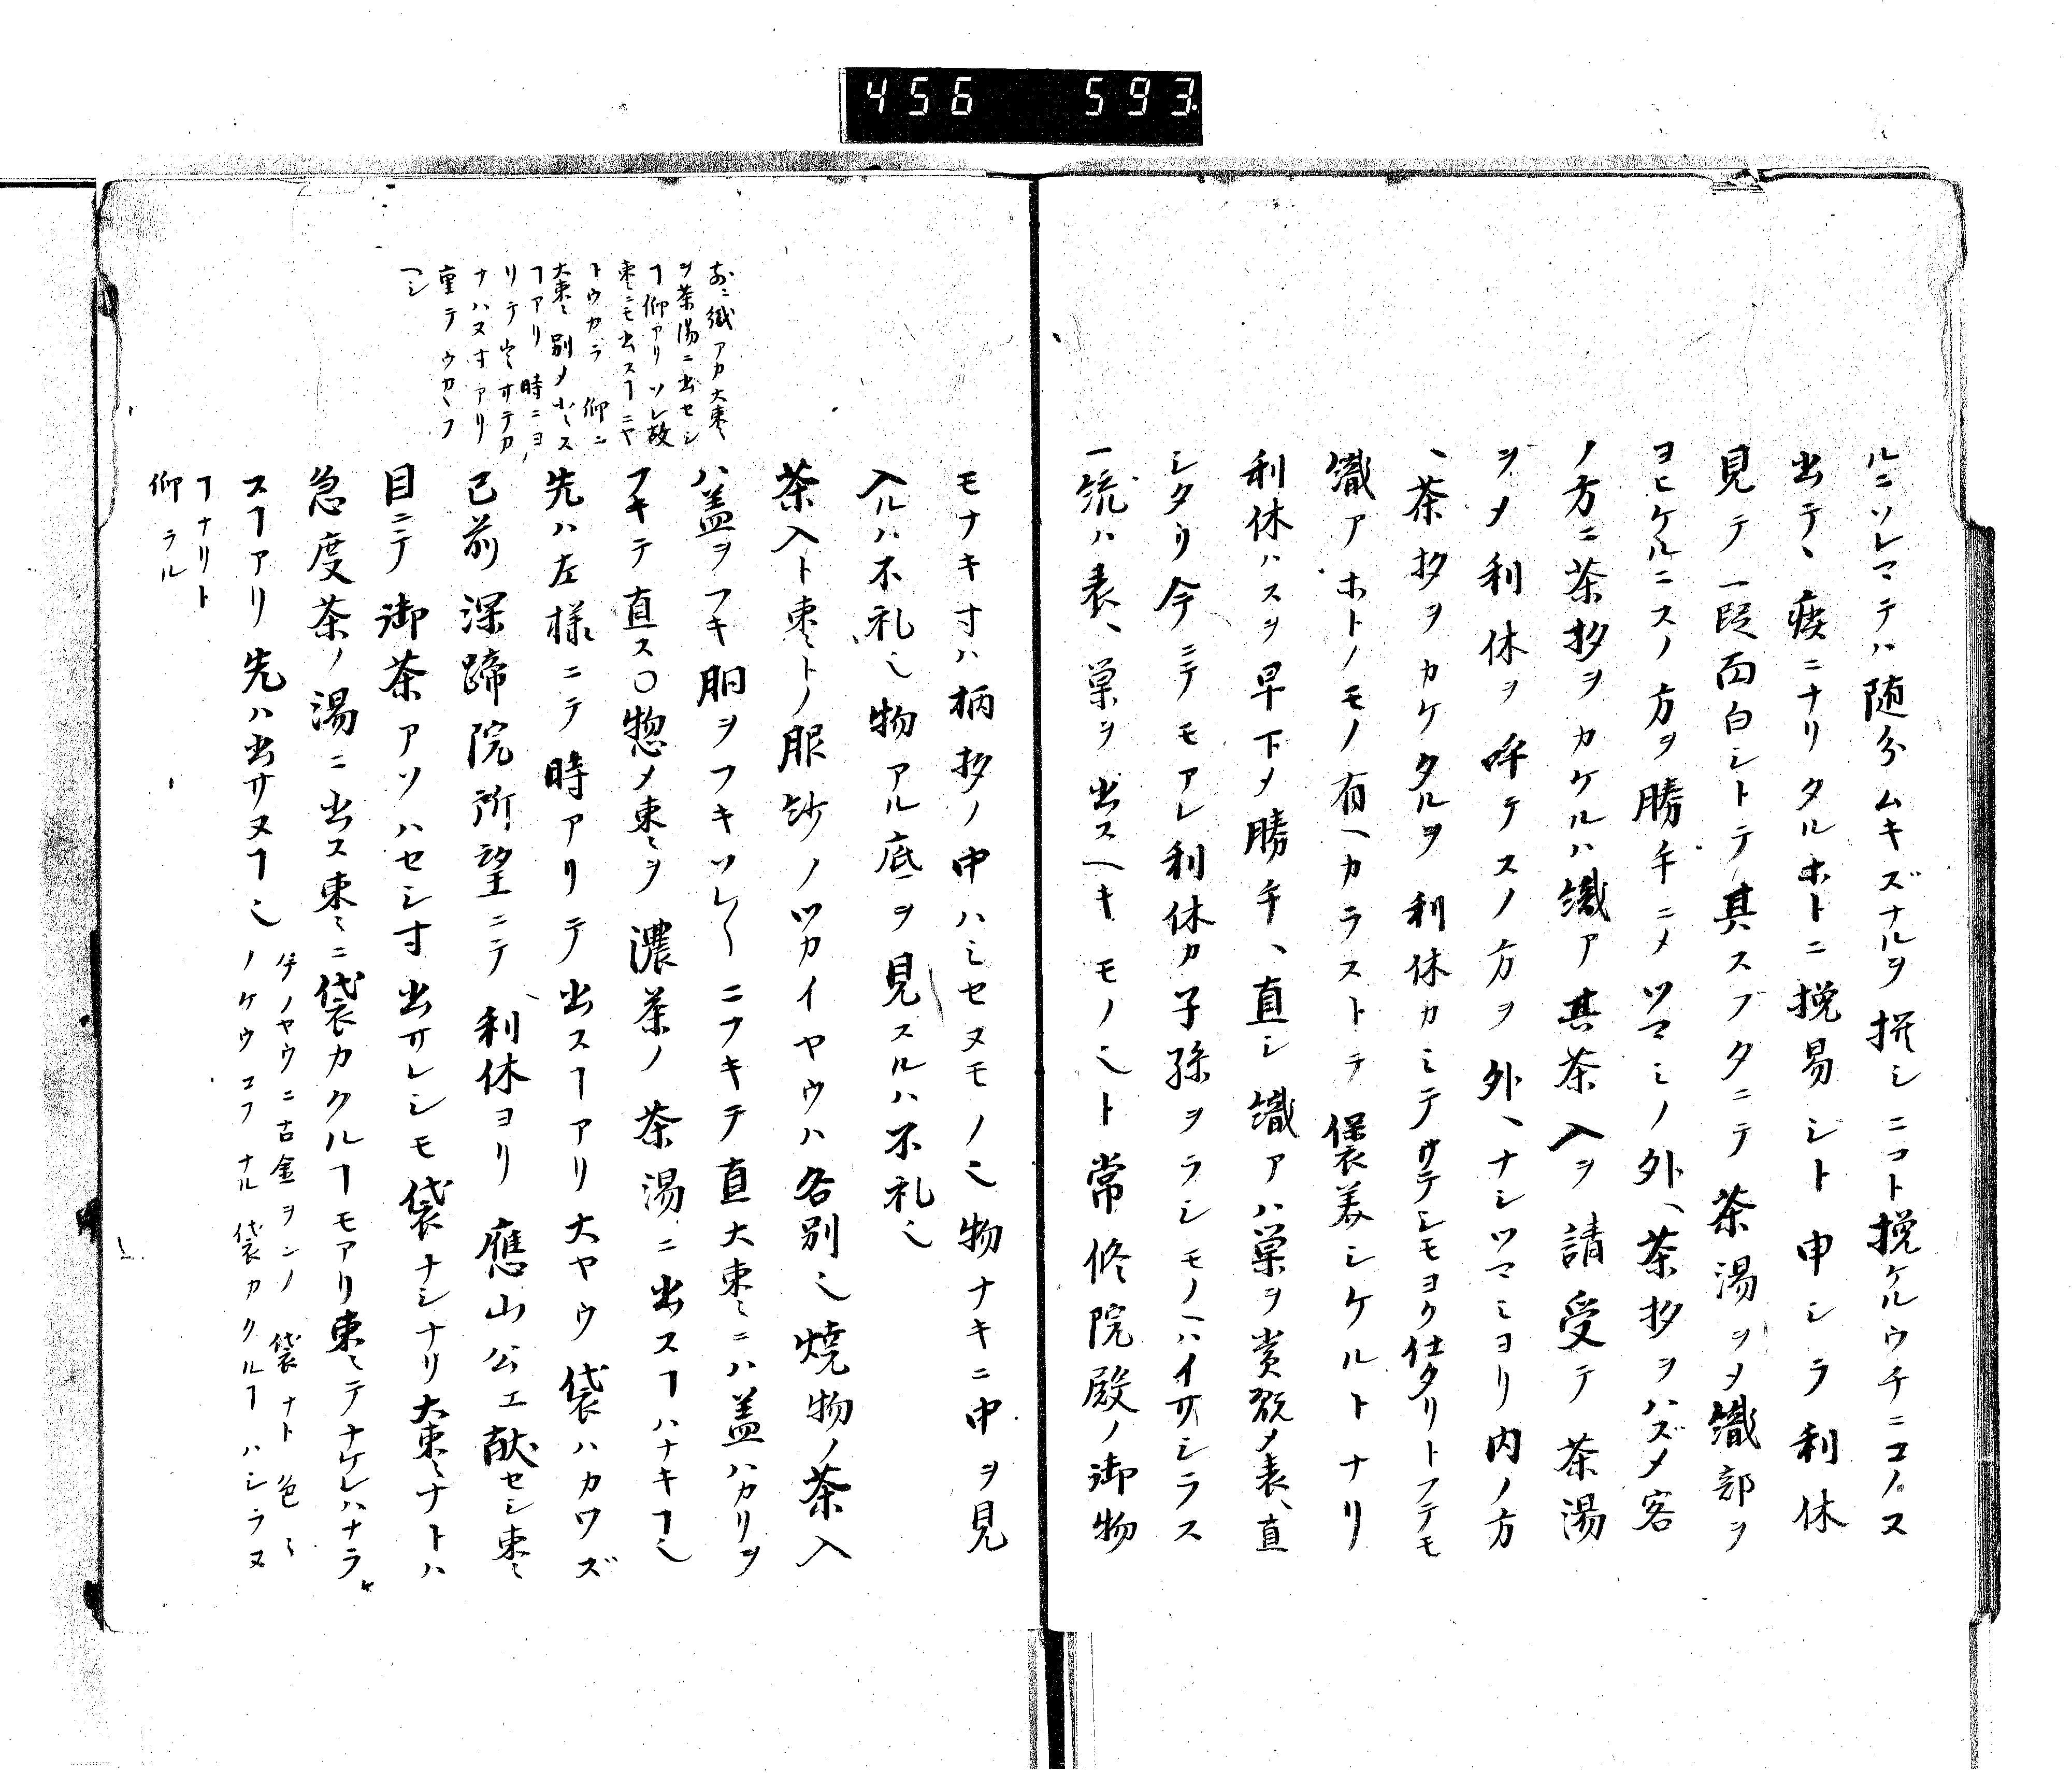 456 593
ルニソレマテハ随分ムキズナルヲ挽シニコト挽ケルウチニコノス
出テ、疾ニナリタルホトニ挽易シト申シラ利休
見テ一段面白シトテ其スブタニテ茶湯ヲメ織部ヲ
ヨヒケルニスノ方ヲ勝手ニメツマミノ外ヘ茶杓ヲハズメ客
ノ方ニ茶杓ヲカケルハ織ア其茶入ヲ請受テ茶湯
ヲメ利休ヲ呼テスノ方ヲ外ヘナシツマミヨリ内ノ方
ヘ茶杓ヲカケタルヲ利休カミテサテシモヨク仕タリトフテモ
織アホトノモノ有ヘカラストテ褒美シケルトナリ
利休ハスヲ早下メ勝手ヘ直シ織アハ菓ヲ賞翫メ表ヘ直
シタリ今ニテモアレ利休カ子孫ヲラシモノハイサシラス
一統ハ表ヘ菓ヲ出スヘキモノ也ト常修院殿ノ御物
モナキ寸ハ柄杓ノ中ハミセヌモノ也物ナキニ中ヲ見
入ルハ不礼也物アル底ヲ見スルハ不礼也
茶入ト棗トノ服紗ノツカイヤウハ各別也焼物ノ茶入
ハ蓋ヲフキ胴ヲフキソレ〱ニフキテ直大棗ニハ蓋ハカリヲ
フキテ直ス〇惣メ棗ヲ濃茶ノ茶湯ニ出スヿハナキヿ也
先ハ左様ニテ時アリテ出スヿアリ大ヤウ袋ハカワズ
已前深諦院所望ニテ利休ヨリ應山公エ献セシ棗
目ニテ御茶アソハセシ寸出サレシモ袋ナシナリ大棗ナトハ
急度茶ノ湯ニ出ス棗ニ袋カクルヿモアリ棗ミテナケレハナラ
スヿアリ先ハ出サヌヿ也
ノヤウニ古金ヲンノ袋ナト色ミ
ノケウコフナル袋カクルヿハシラヌ
ヿナリト
仰ラル
お織アカ大棗
ヲ茶湯ニ出セシ
ヿ仰アリソレ故
棗ニモ出スヿニヤ
トウカラ仰ニ
大棗別メ小ミス
ヿアリ時ニヨ
リテ出サテカ
ナハヌ寸アリ
重テウカヽフ
ヘシ